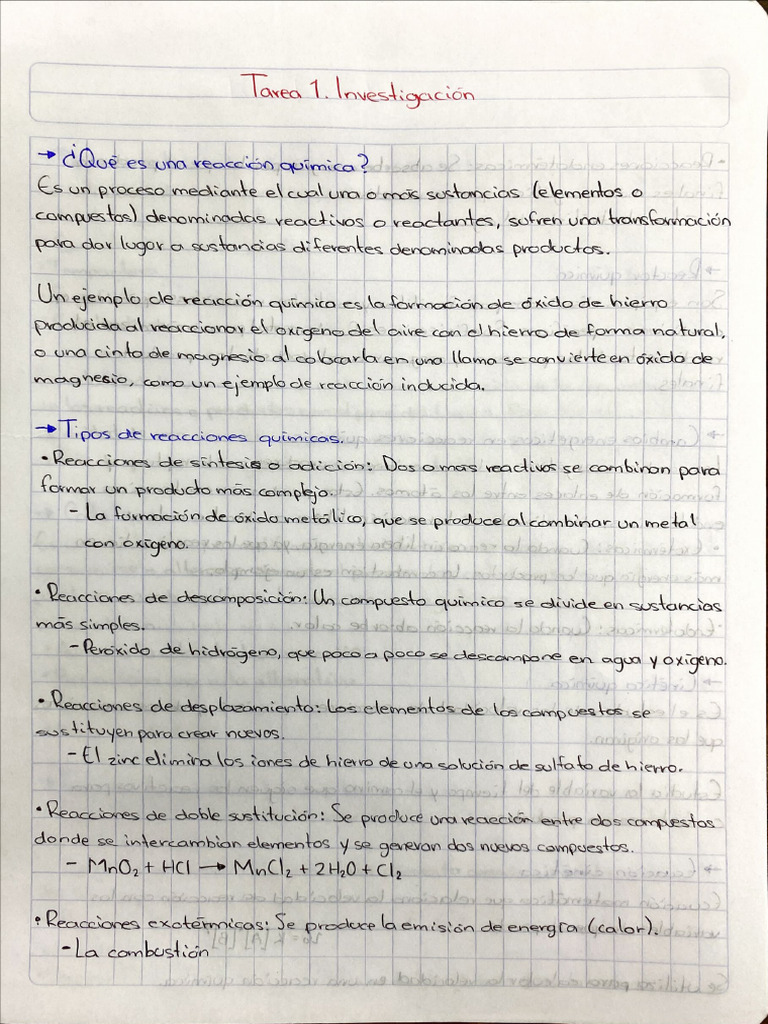 Tarea 1. Investigación
→ ¿Qué es una reacción química?
Es un proceso mediante el cual una o más sustancias (elementos o
compuestos) denominadas reactivos o reactantes, sufren una transformación
para dar lugar a sustancias diferentes denominadas productos.
Un ejemplo de reacción química es la formación de óxido de hierro
producida al reaccionar el oxígeno del aire con el hierro de forma natural,
o una cinta de magnesio al colocarla en una llama se convierte en óxido de
magnesio, como un ejemplo de reacción inducida.
→ Tipos de reacciones químicas.
• Reacciones de síntesis o adición: Dos o más reactivos se combinan para
formar un producto más complejo.
- La formación de óxido metálico, que se produce al combinar un metal
con oxígeno.
• Reacciones de descomposición: Un compuesto químico se divide en sustancias
más simples.
- Peróxido de hidrógeno, que poco a poco se descompone en agua y oxígeno.
• Reacciones de desplazamiento: Los elementos de los compuestos se
sustituyen para crear nuevos.
- El zinc elimina los iones de hierro de una solución de sulfato de hierro.
• Reacciones de doble sustitución: Se produce una reacción entre dos compuestos
donde se intercambian elementos y se generan dos nuevos compuestos.
- MnO₂ + HCl → MnCl₂ + 2H₂O + Cl₂
• Reacciones exotérmicas: Se produce la emisión de energía (calor).
- La combustión